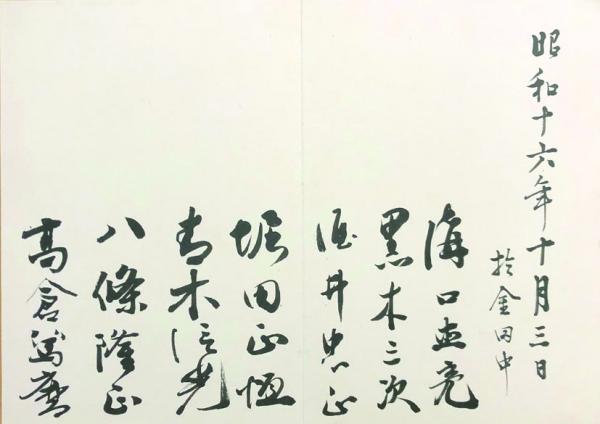 昭和十六年十月三日
於金田中
溝口直亮
黒木三次
酒井忠正
堀田正恒
青木信光
八條隆正
高倉篤麿